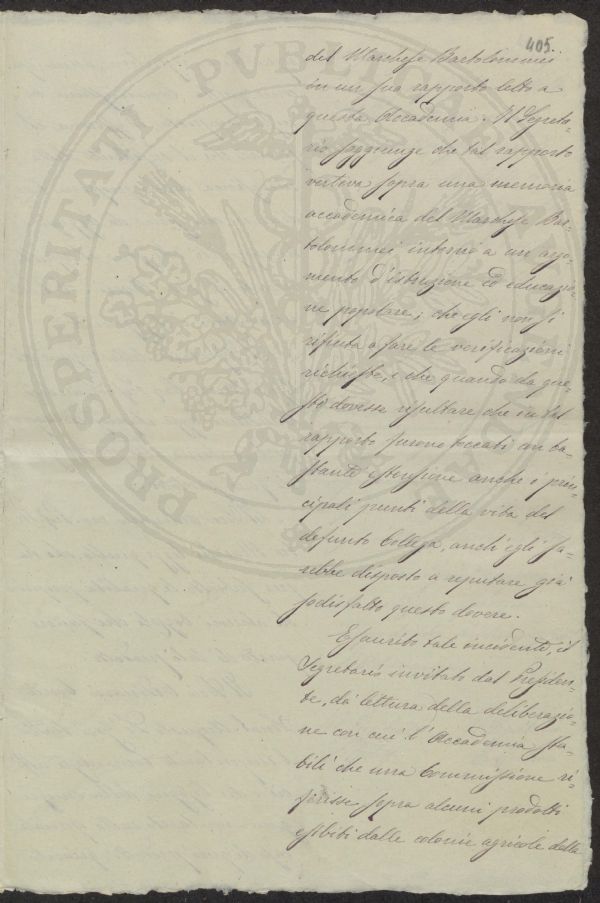 405.
del Marchese Bartolommei
in un suo rapporto letto a
questa Accademia. Il Segreta-
rio soggiunge che tal rapporto
verteva sopra una memoria
accademica del Marchese Bar-
tolommei intorno a un argo-
mento d'istruzione ed educazio-
ne popolare; che egli non si
rifiuta a fare le verificazioni
richieste, e che quando da que-
sto dovesse risultare che in tal
rapporto furono toccati con ba-
stante estensione anche i prin-
cipali punti della vita del
defunto Collega, anch'egli sa-
rebbe disposto a reputare già
sodisfatto questo dovere.
Esaurito tale incidente, il
Segretario invitato dal Presiden-
te, dà lettura della deliberazio-
ne con cui l'Accademia sta-
bilì che una Commissione ri-
ferisse sopra alcuni prodotti
esibiti dalle colonie agricole della
PROSPERITATI PVBLICAE